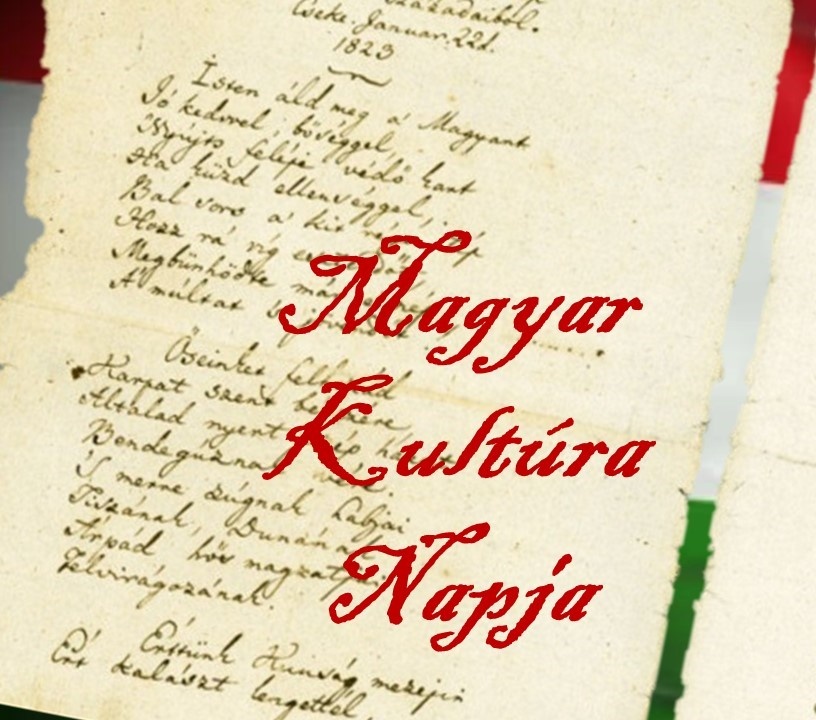 századaiból.
Cseke. Januar. 22d.
1823
Isten áld meg a' Magyart
Jó kedvvel, bőséggel,
Nyújts feléje védő kart
Ha küzd ellenséggel,
Bal sors a' kit
Hozz rá víg
Megbűnhődte már
A' múltat
Magyar
Őseinket
Kárpát szent
Általad nyert
Kultúra
Bendegúznak vére.
'S merre zúgnak habjai
Tiszának, Dunának
Árpád hős magzatjai
Felvirágozának.
Napja
Értünk Kunság mezején
Ért kalászt lengettél,